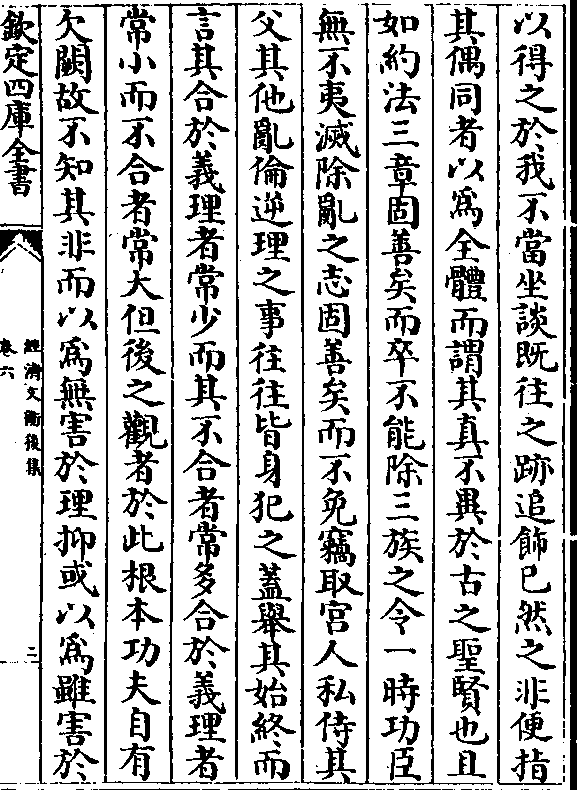 以得之於我不當坐談既往之跡追飾已然之非便指
其偶同者以爲全體而謂其真不異於古之聖賢也且
如約法三章固善矣而卒不能除三族之令一時功臣
無不夷滅除亂之志固善矣而不免竊取宮人私侍其
父其他亂倫逆理之事往往皆身犯之蓋舉其始終而
言其合於義理者常少而其不合者常多合於義理者
常小而不合者常大但後之觀者於此根本功夫自有
欠闕故不知其非而以爲無害於理抑或以爲雖害於
欽定四庫全書
經濟文衡後集
卷六
二